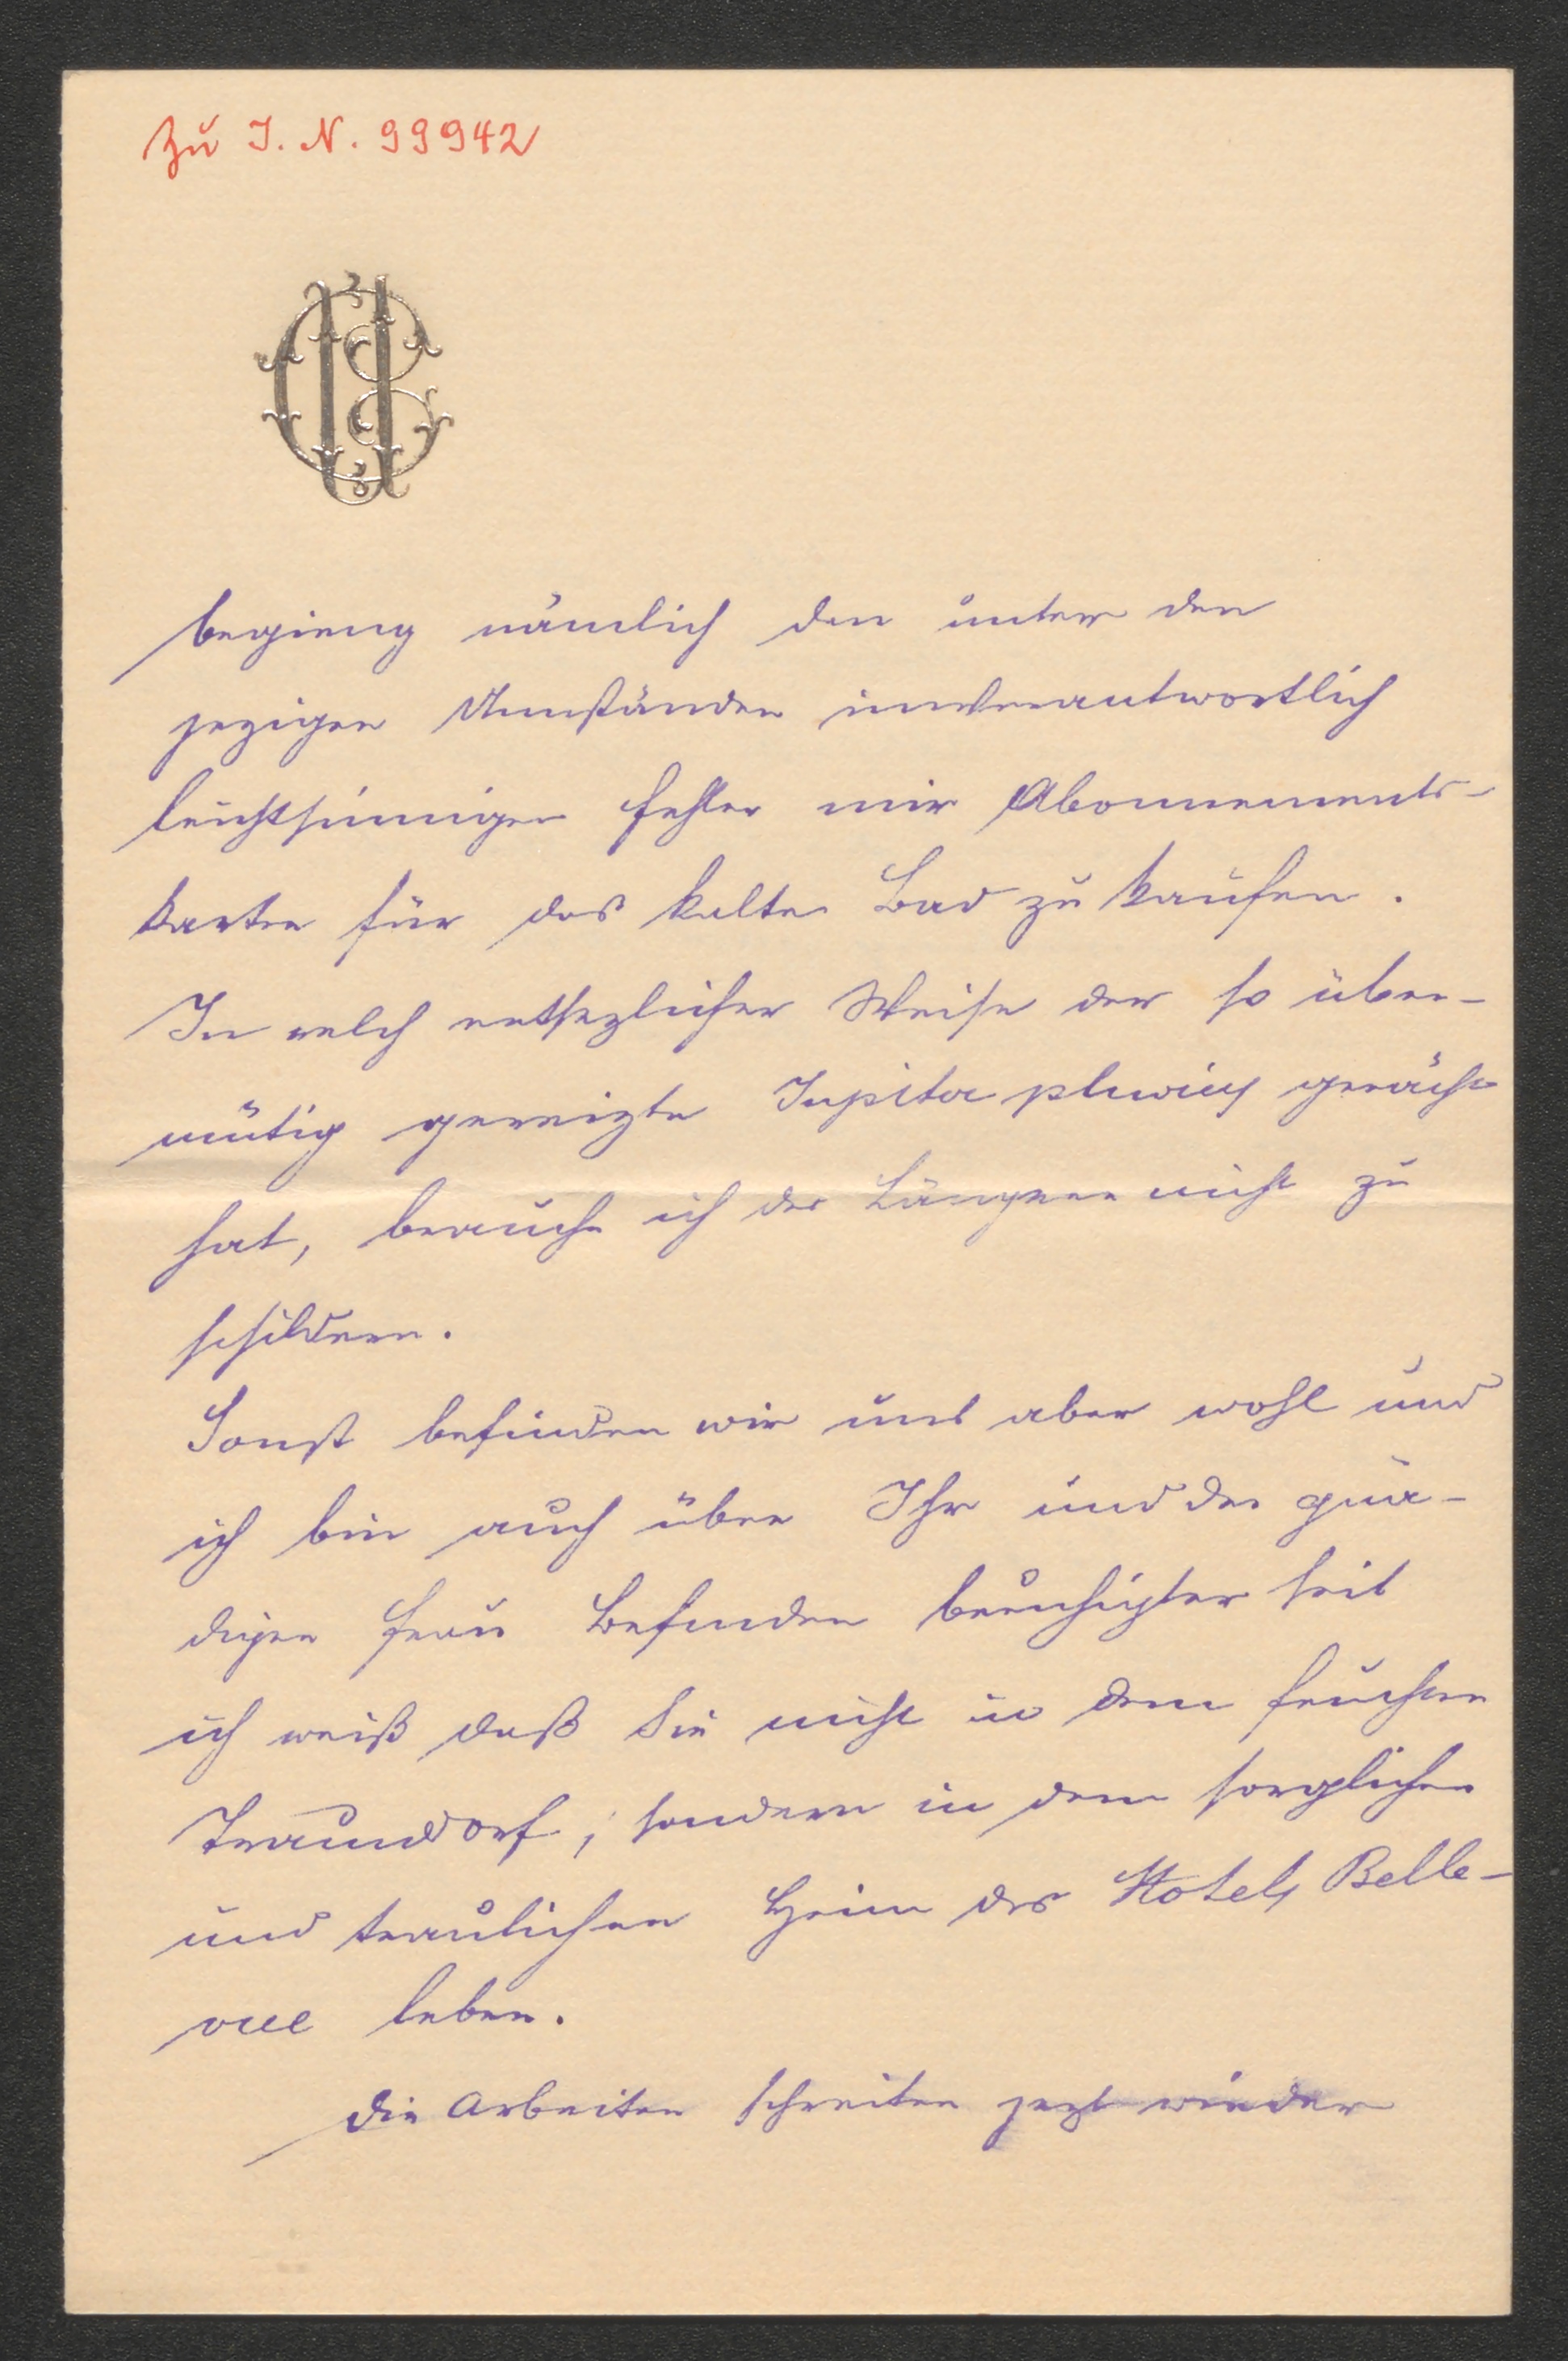 Zu I. N. 99942
begieng nämlich den unter den
jezigen Umständen unverantwortlich
leichtsinnigen Fehler mir Abonnements-
karten für das kalte Bad zu kaufen.
In welch entsezlicher Weise der so über-
mütig gereizte Jupiter pluvius gerächt
hat, brauche ich des Längeren nicht zu
schildern.
Sonst befinden wir uns aber wohl und
ich bin auch über Ihr und der gnä-
digen Frau Befinden beruhigter seit
ich weiß daß Sie nicht in dem feuchten
Traundorf, sondern in dem sorglichen
und traulichen Heim des Hotels Belle-
vue leben.
Die Arbeiten schreiten jezt wieder